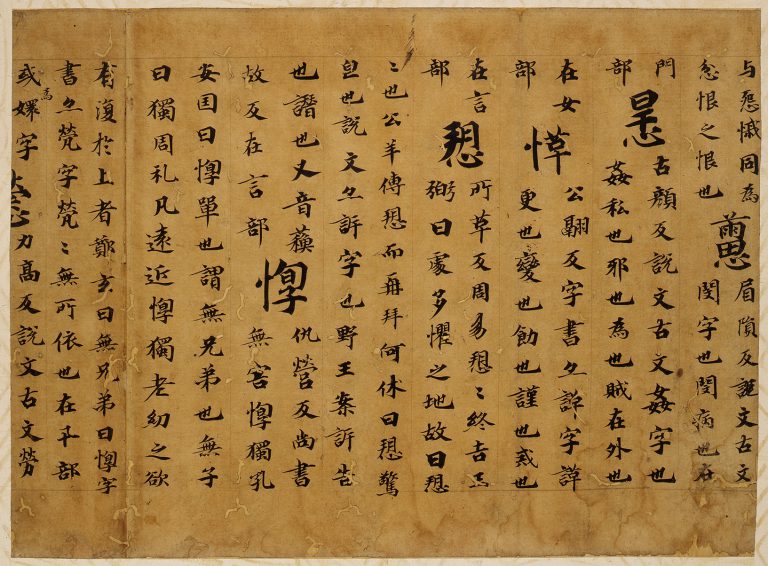 与慼慽同為𢣷眉隕反說文古文
忿恨之恨也閔字也閔病也在
門𢘓古顏反說文古文姦字也
部姦私也邪也為也賊在外也
在女愅公翮反字書亦諽字諽
部更也變也飭也謹也戒也
在言愬所革反周易愬〻終吉王
部弼曰處多懼之地故曰愬
〻也公羊傳愬而再拜何休曰愬驚
皃也說文亦訴字也野王案訴告
也譖也又音蘓惸仇營反尚書
故反在言部無害惸獨孔
安国曰惸單也謂無兄弟也無子
曰獨周礼凡遠近惸獨老幼之欲
有復於上者鄭玄曰無兄弟曰惸字
書亦煢字煢〻無所依也在卂部
或為嬛字力高反說文古文勞